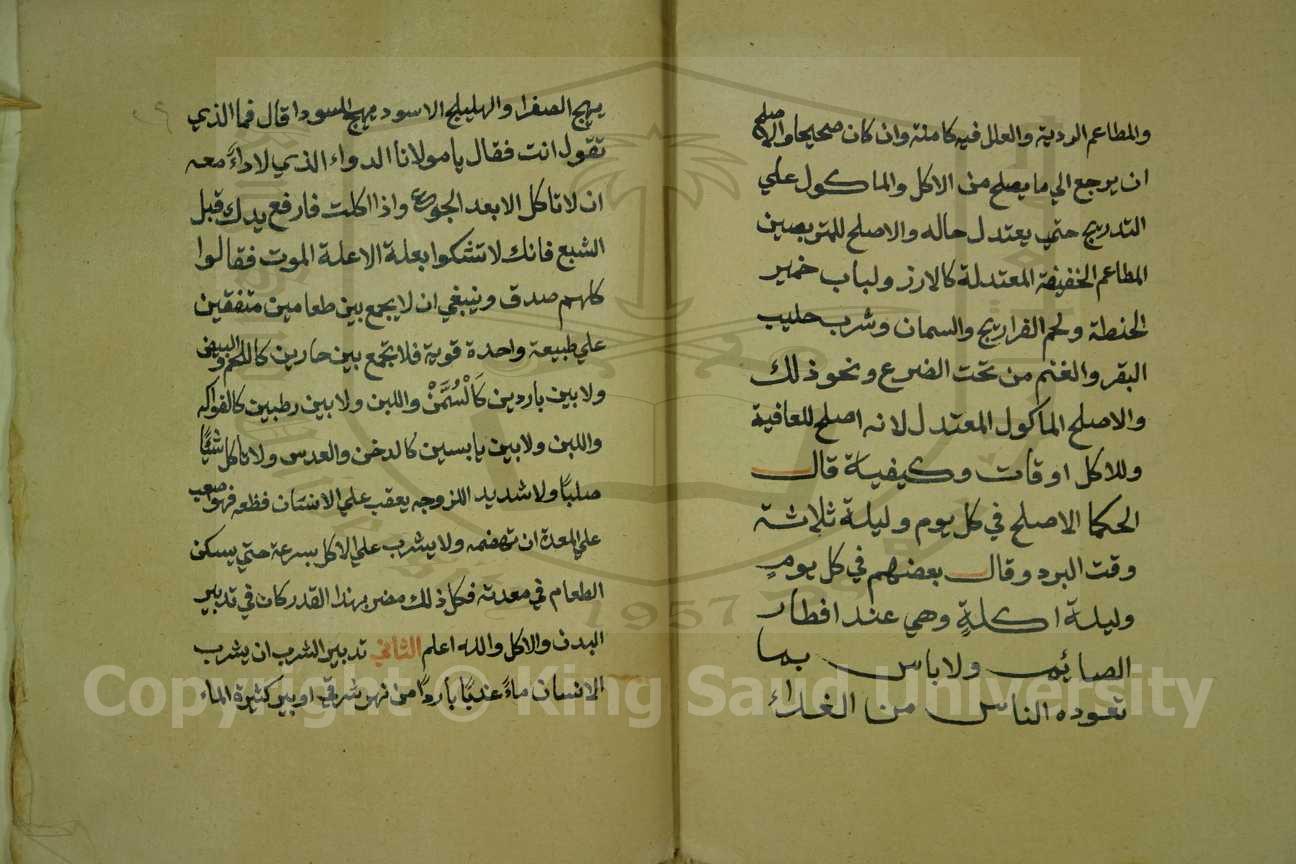 والمطاعم الردية والعلل فيه كامنة وان كان صحيحا والاصلح
ان يرجع الي ما يصلح من الاكل والماكول علي
التدريج حتي يعتدل حاله والاصلح للمتربصين
المطاعم الخفيفة المعتدلة كالارز ولباب خمير
الحنطة ولحم الفراريج والسمان وشرب حليب
البقر والغنم من تحت الضرع ونحو ذلك
والاصلح الماكول المعتدل لانه اصلح للعافية
وللاكل اوقات وكيفية قال
الحكما الاصلح في كل يوم وليلة ثلاثة
وقت البرد وقال بعضهم في كل يومٍ
وليلة اكلةٍ وهي عند افطار
الصايم ولاباس بما
تعوده الناس من الغداء
يهيج الصفرا والهليلج الاسود يهيج السودا قال فما الذي
تقول انت فقال يا مولانا الدواء الذي لا داءً معه
ان لا تاكل الا بعد الجوع واذا اكلت فارفع يدك قبل
الشبع فانك لا تشكوا بعلة الا علة الموت فقالوا
كلهم صدق وينبغي ان لا يجمع بين طعامين متفقين
علي طبيعة واحدة قوية فلا يجمع بين حارين كاللحم والبيض
ولا بين باردين كَالْسُمَّنْ واللبن ولا بين رطبين كالفواكه
واللبن ولا بين يابسين كالدخن والعدس ولا تاكل شيًا
صلبًا ولا شديد اللزوجه يعقب علي الاسنان فظعه فهو صعب
علي المعدة ان تهضمه ولا يشرب علي الاكل بسرعة حتي يسكن
الطعام في معدته فكل ذلك مضر بهذا القدر كان في تدبير
البدن والاكل والله اعلم الثاني تدبير الشرب ان يشرب
الانسان ماءً عذبًا باردًا من نهر شرقي او بير كثيرة الماء
1957
Copyright © King Saud University